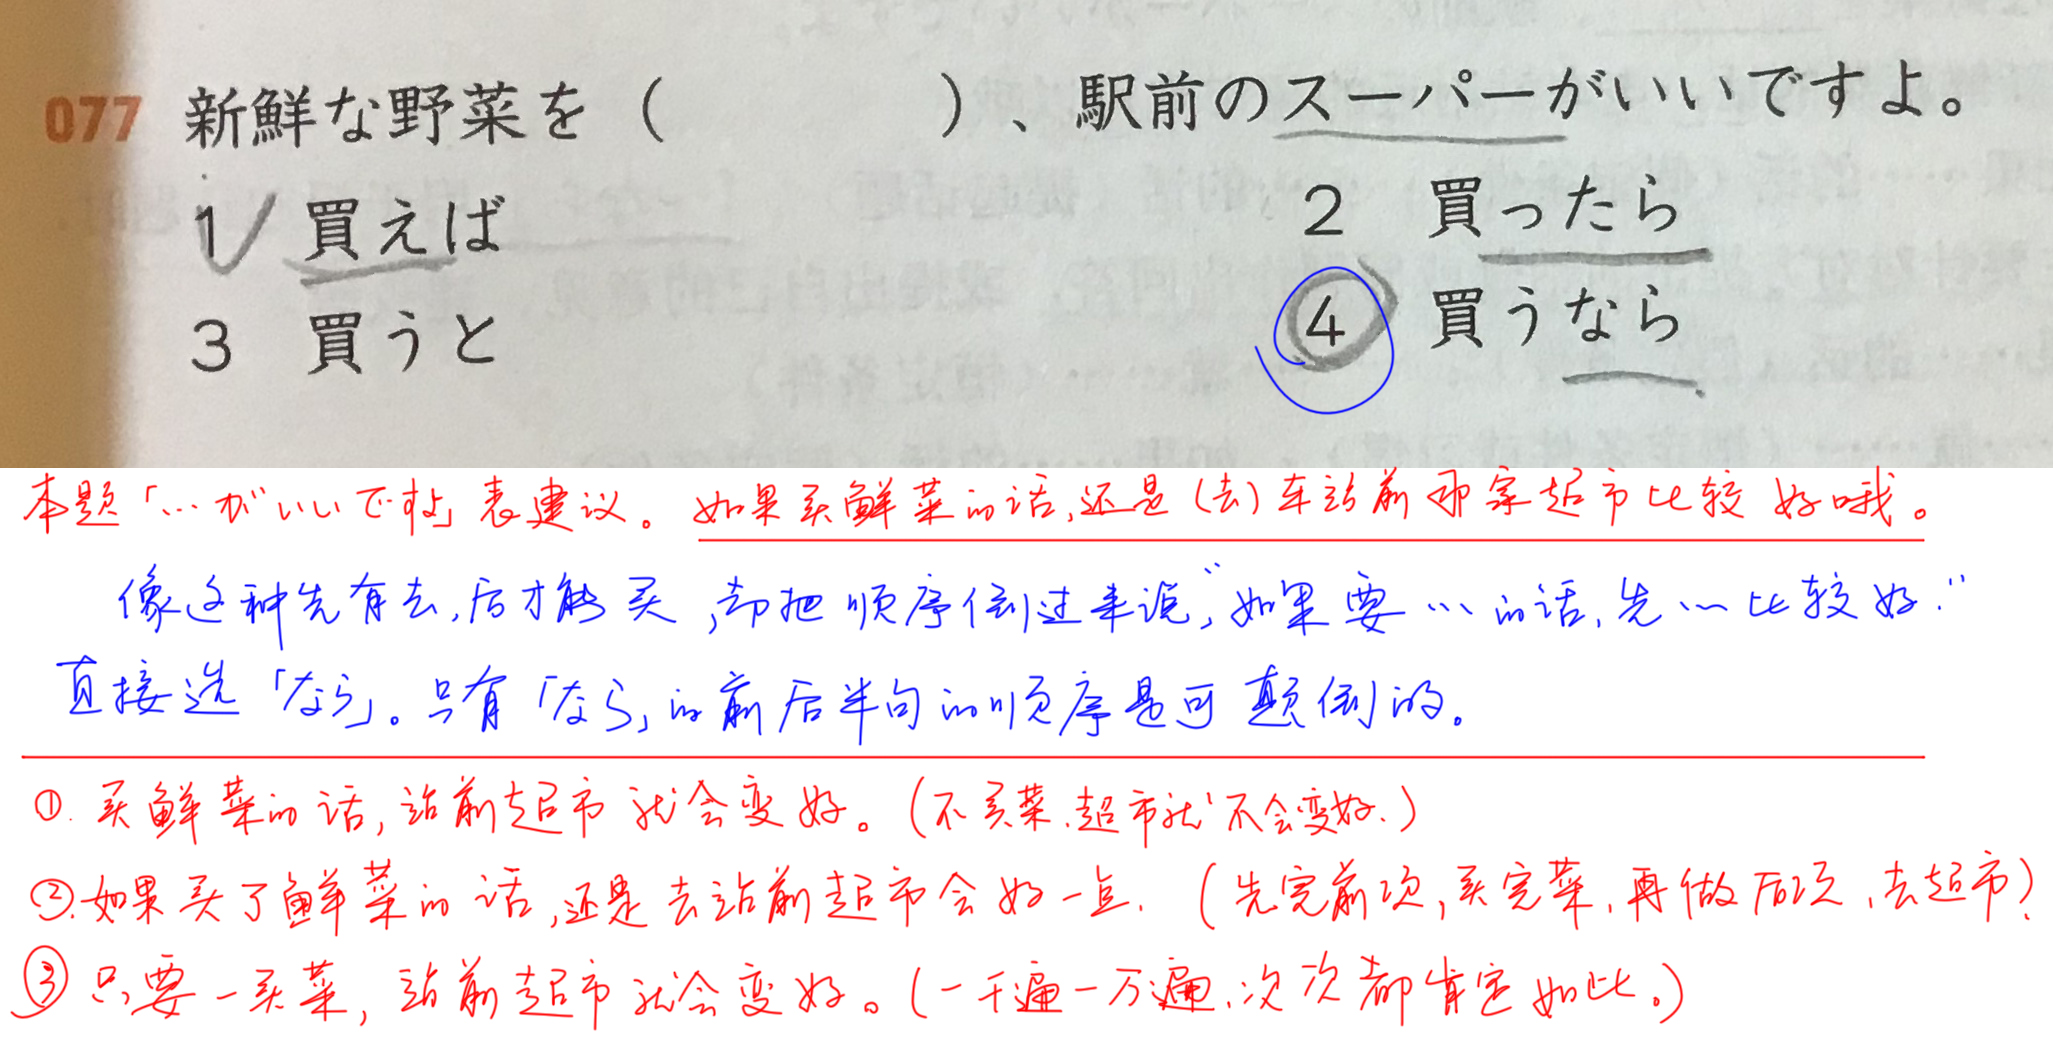 077 新鮮な野菜を（　　　　）、駅前のスーパーがいいですよ。
1 買えば　2 買ったら
3 買うと　4 買うなら
本题「…がいいですよ」表建议。如果买鲜菜的话,还是(去)车站前那家超市比较好哦。
像这种先有去,后才能买,却把顺序倒过来说,"如果要…的话,先…比较好."
直接选「なら」。只有「なら」的前后半句的顺序是可颠倒的。
①.买鲜菜的话,站前超市就会变好。(不买菜.超市就不会变好.)
②.如果买了鲜菜的话,还是去站前超市会好一点.(先完前项,买完菜,再做后项,去超市?
③只要一买菜,站前超市就会变好。(一千遍一万遍,次次都肯定如此。)